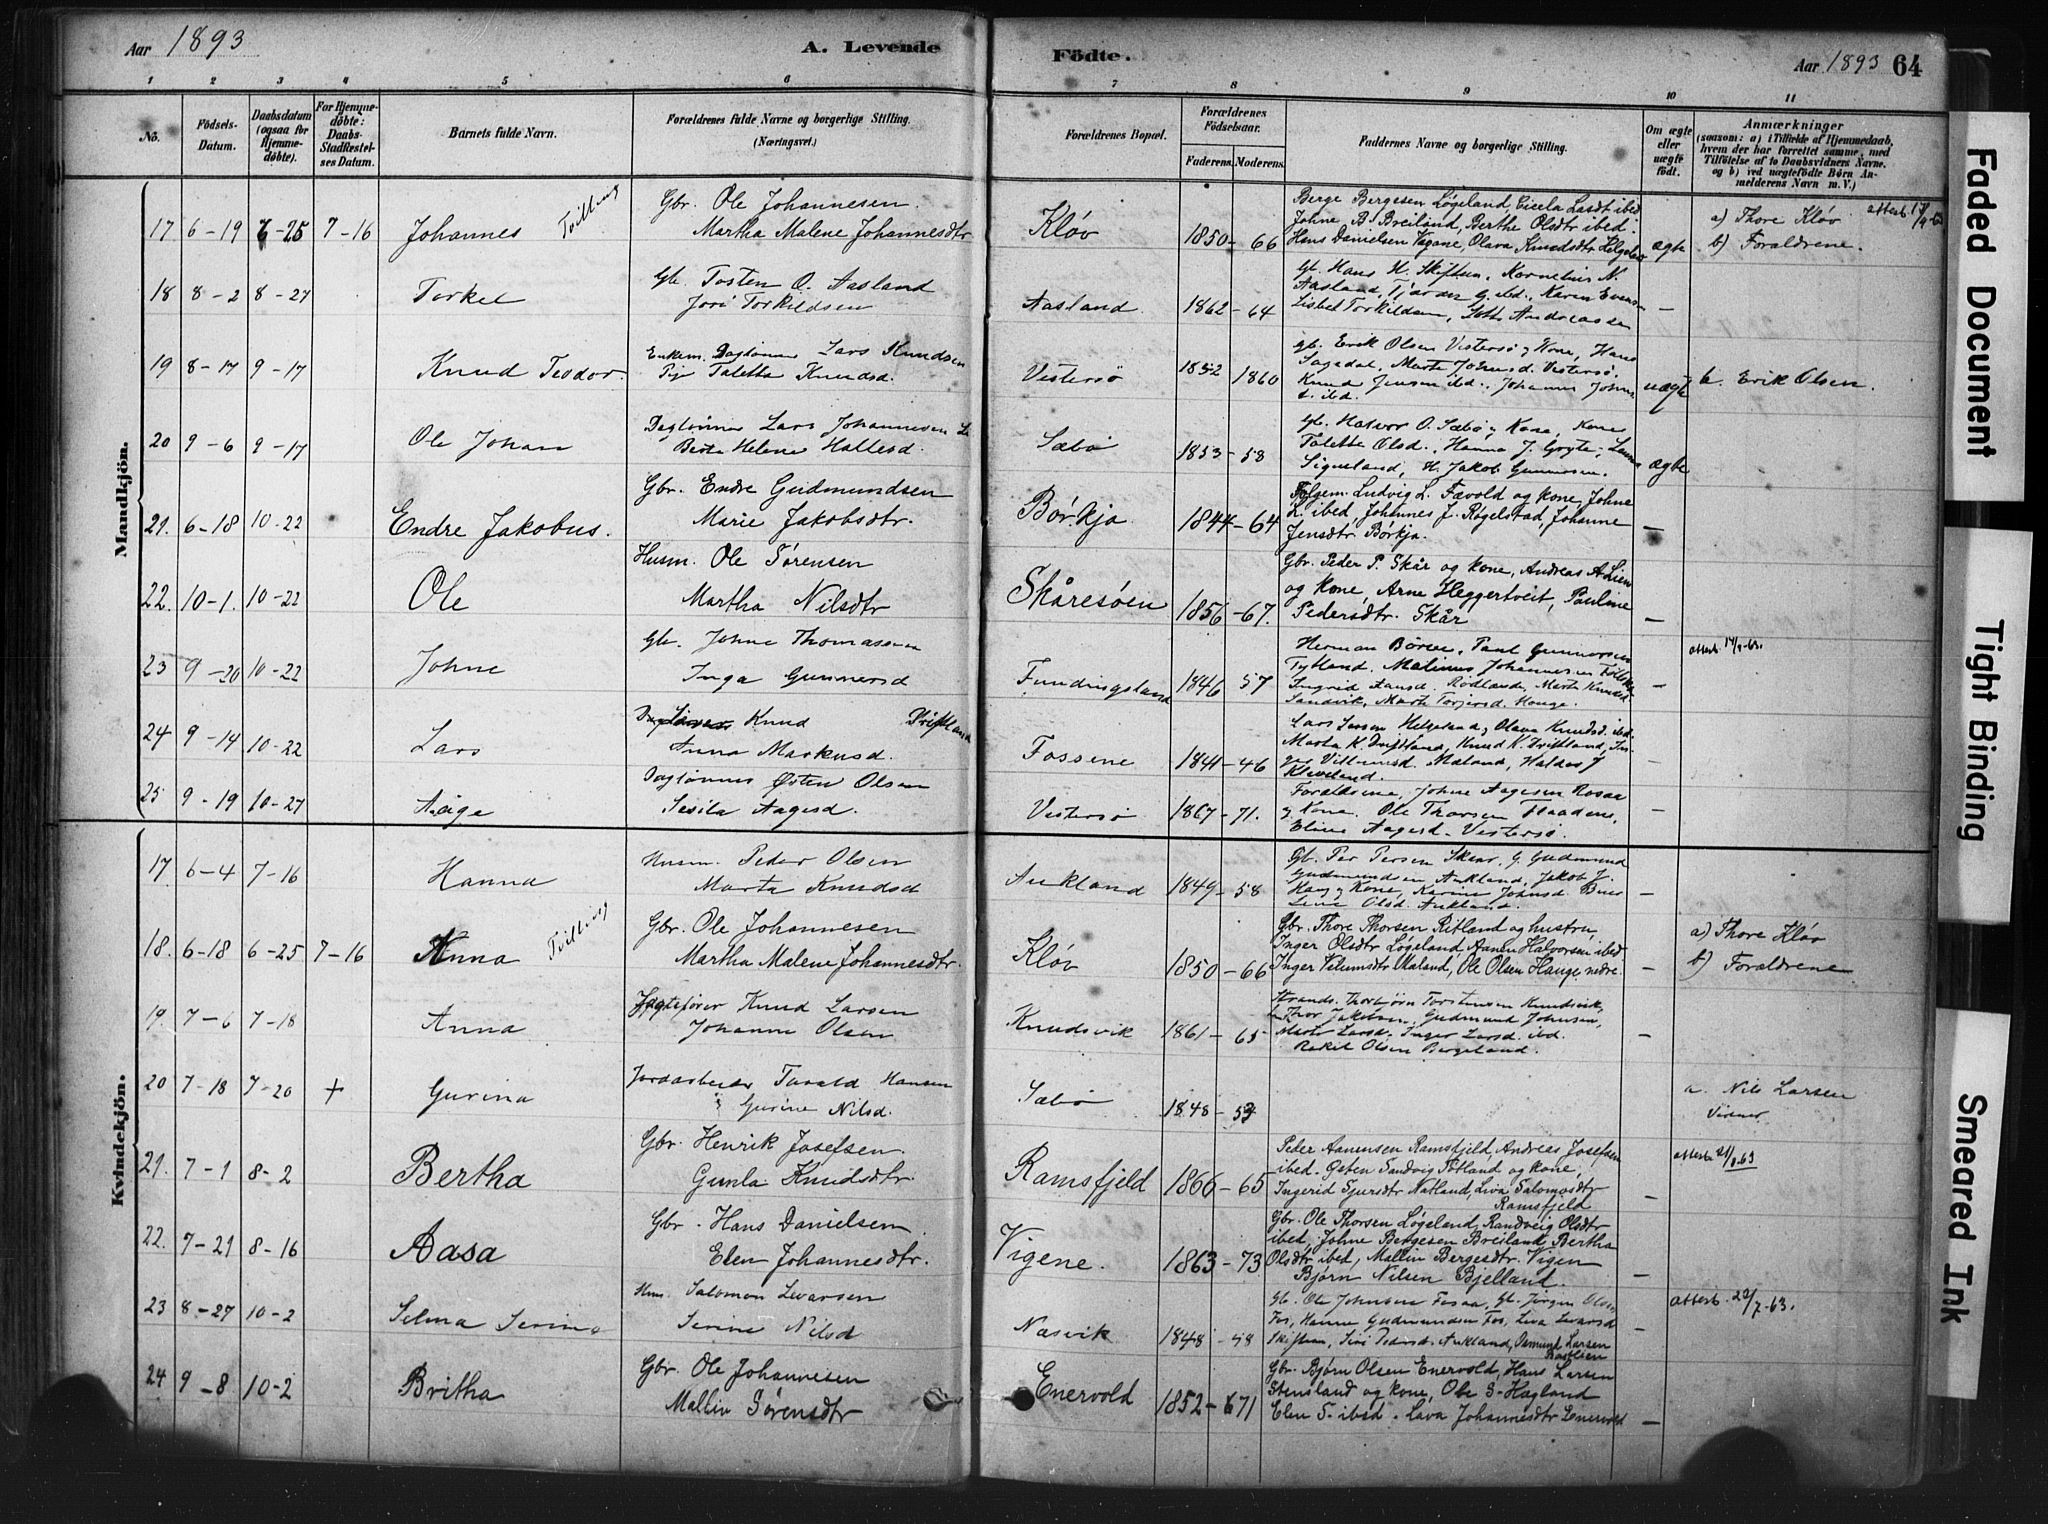 Aar 1893
A. Levende Födte.
Aar 1893 64
1 2 3 4 5 6 7 8 9 10 11
No.
Födsels-Datum.
Daabsdatum (ogsaa for Hjemmedöbte).
For Hjemmedöbte: Daabs-Stadfæstelses Datum.
Barnets fulde Navn.
Forældrenes fulde Navne og borgerlige Stilling. (Næringsvei.)
Forældrenes Bopæl.
Forældrenes Födselsaar.
Faderens. Moderens.
Faddernes Navne og borgerlige Stilling.
Om ægte eller uægte födt.
Anmærkninger
(saasom: a) i Tilfælde af Hjemmedaab,
hvem der har forrettet samme, med
Tilföielse af to Daabsvidners Navne,
og b) ved uægtefödte Børn Anmelderens Navn m. V.)
Mandkjön.
17 6-19 6-25 7-16 Johannes Tvilling
Gbr. Ole Johannesen
Martha Malene Johannesdtr
Kløv 1850-66
Berge Bergesen Løgeland, Lasdt ibed
Johne B. Breiland, Berthe Olsdtr ibed.
Hans Danielsen Vagane, Olava Knudsdtr
ægte
a) Thore Kløv
b) Forældrene.
18 8-2 8-27 Torkel
Gb. Tosten O. Aasland
Jori Torkildsen
Aasland 1862-64
Gb. Hans H. Skiftun, Kornelius N.
Aasland, G. ibd., Karen
Lisbet Torkildsen, Andreassen
—
19 8-17 9-17 Knud Teodor.
Enkem. Dagløner Lars Knudsen
Pige Taletta Knudsd.
Vestersø 1852 1860
gb. Erik Olsen Vestersø og Kone, Hans
Sagedal, Marte Johnsd. Vestersø.
Knud Jensen ibd., Johannes
uægte
b. Erik Olsen.
20 9-6 9-17 Ole Johan
Dagløner Lars Johannesen
Berte Helene Hallesd.
Sæbø 1853-58
gb. Halvor O. Sæbø og Kone,
Talette Olsd., Hanna J. Gryte,
Sigveland, H. Jakob Gunnarsen.
ægte
21. 6-18 10-22 Endre Jakobus.
Gbr. Endre Gudmundsen
Marie Jakobsdtr.
Børkja 1844-64
Følgem. Ludvig L. Fævold og kone, Johne
L. ibed, Johannes J. Røgelstad, Johanne
Jensdtr Børkja.
—
22. 10-1. 10-22 Ole
Husm. Ole Sørensen
Martha Nilsdtr
Skåresøen 1856-67.
Gbr. Peder P. Skår og kone, Andreas A. Lien
og kone, Arne Heggertveit, Pauline
Pedersdtr. Skår
—
23 9-20 10-22 Johne
Gb. Johne Thomassen
Inga Gunnersd
Fundingsland 1846 57
Herman Børsee, Paul Gunnarsen
Tytland, Malinus Johannesen
Ingrid Rødlands, Marta
Sandvik, Marta Hauge.
—
attest. 14/9-63.
24 9-14 10-22 Lars
Knud Driftland
Anna Markusd.
Fossene 1841-46
Lars Larsen Helgeland, Olava Knudsd. ibd.
Marta K. Driftland, Knud K. Driftland,
Maland, Haldor J.
Kleveland.
25 9-19 10-27 Aage
Dagløner Østen Olsen
Sesila Aagesd.
Vestersø 1867-71.
Forældrene, Johne Aagesen Rosaa
og Kone. Ole Thorsen
Eline Aagesd. Vestersø.
—
Kvindekjön.
17. 6-4 7-16 Hanna
Husm. Peder Olsen
Marta Knudsd
Aukland 1849-58
Gb. Per Persen, G. Gudmund
Gudmundsen Aukland, Jakob J.
og Kone, Karine Johnsd
Olsd. Aukland.
—
18. 6-18 6-25 7-16 Anna Tvilling
Gbr. Ole Johannesen
Martha Malene Johannesdtr.
Kløv 1850-66
Gbr. Thore Thorsen Ritland og hustru
Inger Olsdtr Løgeland, Aanen Halvorsen ibed
Inger Vilumsdtr Maland, Ole Olsen Hauge nedre.
—
a) Thore Kløv
b) Forældrene
19. 7-6 7-18 Anna
Jagtefører Knud Larsen
Johanne Olsen
Knudsvik 1861-65
Strands. Thorbjørn Torstensen Knudsvik,
Thor Jakobsen, Gudmund Johnsen,
Marte Larsd. Inger Larsd. ibd.
Rakel Olsen Bergeland.
—
20 7-18 7-20 + Gurina
Jordarbeider Tarald Hansen
Gurine Nilsd.
Sæbø 1848-53
a. Nils Larsen
Vidner
21. 7-1 8-2 Bertha
Gbr. Henrik Josefsen.
Gunla Knudsdtr.
Ramsfjeld 1866-65
Peder Aanensen Ramsfjeld, Andreas Josefsen
ibed. Østen Sandvig Totland og kone,
Ingerid Sjursdtr Natland, Liva Salomosdtr
Ramsfjeld
—
attest. 21/8-63
22. 7-21 8-16 Aasa
Gbr. Hans Danielsen
Elen Johannesdtr.
Vigene. 1863-73
Gbr. Ole Thorsen Løgeland, Randveig Olsdtr
ibed, Johne Bergesen Breiland, Bertha
Olsdtr ibed, Mallin Bergesdtr. Vigen
Bjørn Nilsen Bjelland.
—
23 8-27 10-2 Selma Serina
Hus. Salomon Levarsen
Serine Nilsd
Næsvik 1848-48
gb. Ole Johnsen Fosaa, gb. Jørgen Olsen
Fos, Hanne Gudmundsen Fos, Liva Levarsd
Skiftun, Siri Pedersd. Aukland, Osmund Larsen
Bastlien
—
attest. 22/7-63.
24 9-8 10-2 Britha
Gbr. Ole Johannesen
Mallin Sørensdtr
Enervold 1852-671
Gbr. Bjørn Olsen Enervold, Hans Larsen
Stensland og kone, Obe S. Hagland
Elen S. ibsd. Lava Johannesdtr Enervold
—
Faded Document
Tight Binding
Smeared Ink